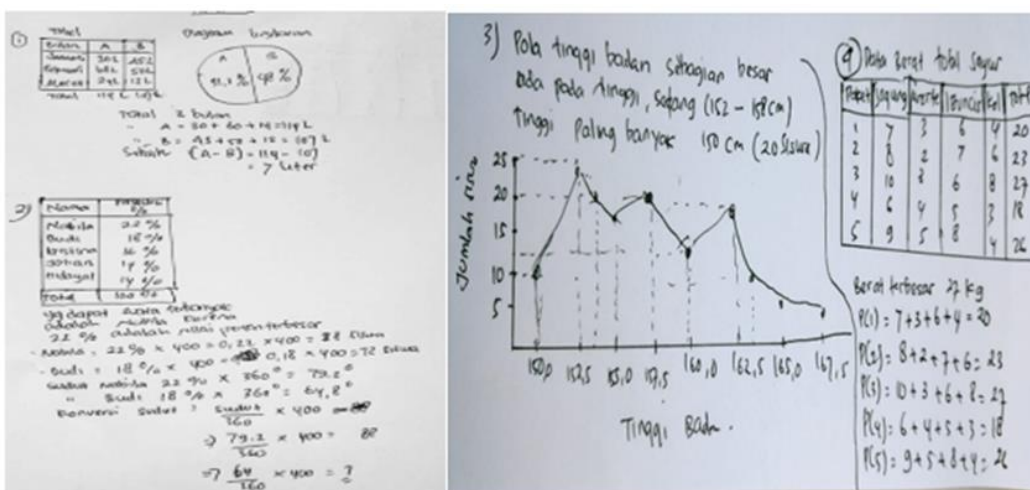 1
Tabel
Bulan A B
Januari 30L 45L
Total 114L 107L
Diagram lingkaran
A B
48 %
Total 3 bulan
A = 30 + 60 + 24 = 114 L
Selisih (A - B) = 114 - 107
= 7 Liter
2)
Nama
Nabila 22 %
Budi 18 %
Kristina
Johan 14 %
Hidayat 14 %
Total 100 %
yg dapat suara terbanyak
adalah Nabila karena
22 % adalah nilai persen terbesar
- Nabila = 22 % x 400 = 0,22 x 400 = 88 Siswa
- Budi = 18 % x 400 = 0,18 x 400 = 72 Siswa
Sudut Nabila 22 % x 360° = 79.2°
" Budi 18 % x 360° = 64,8°
Konversi Sudut = Sudut/360 x 400
=> 79.2/360 x 400 = 88
=> 64/360 x 400 = ?
3) Pola tinggi badan sebagian besar
ada pada tinggi, sedang (152 - 158 cm)
Tinggi Paling banyak 150 cm (20 Siswa)
Jumlah
25
20
15
10
5
150,0 152,5 155,0 157,5 160,0 162,5 165,0 167,5
Tinggi Badan.
4 Data Berat total Sayur
Paket Jagung Wortel Buncis Kol Total
1 7 3 6 4 20
2 8 2 7 6 23
3 10 3 6 8 27
4 6 4 5 3 18
5 9 5 8 4 26
Berat terbesar 27 kg
P(1) = 7+3+6+4 = 20
P(2) = 8+2+7+6 = 23
P(3) = 10+3+6+8 = 27
P(4) = 6+4+5+3 = 18
P(5) = 9+5+8+4 = 26